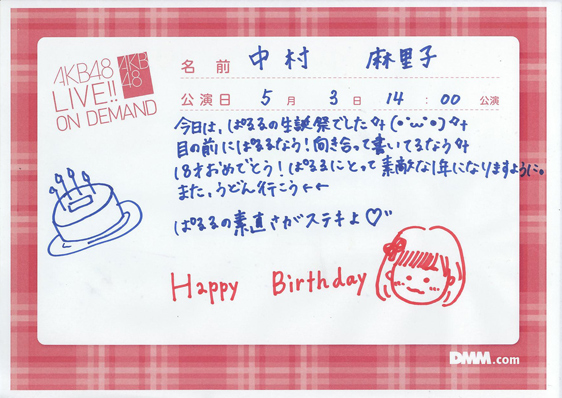 AKB48
LIVE!!
ON DEMAND
AKB
48
名前 中村 麻里子
公演日 5月 3日 14:00 公演
今日は、ぱるるの生誕祭でした(•'ω'•)
目の前にぱるるなう!向き合って書いてるなう
18才おめでとう!ぱるるにとって素敵な1年になりますように。
また、うどん行こう←←
ぱるるの素直さがステキよ♡
Happy Birthday
DMM.com